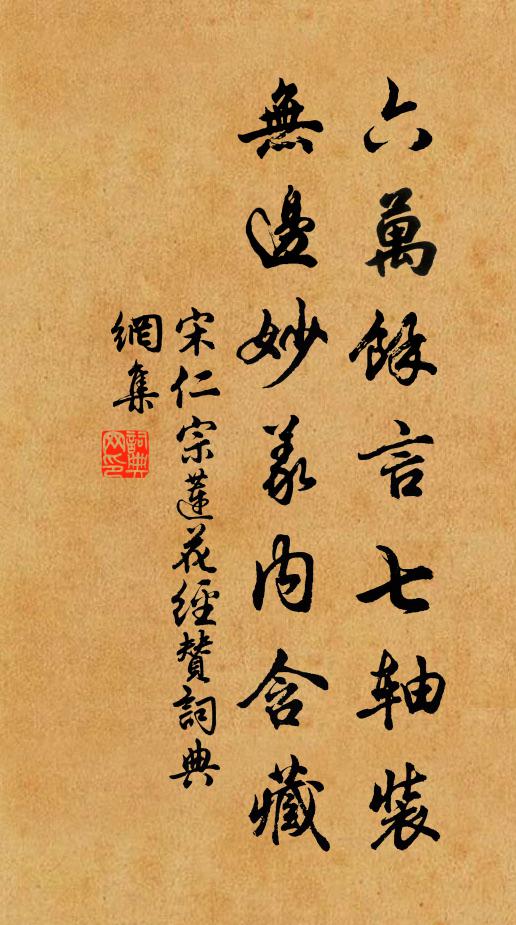 六萬餘言七轴裝
無邊妙義內含藏
宋仁宗蓮花經贊詞典
網集
詞典網印